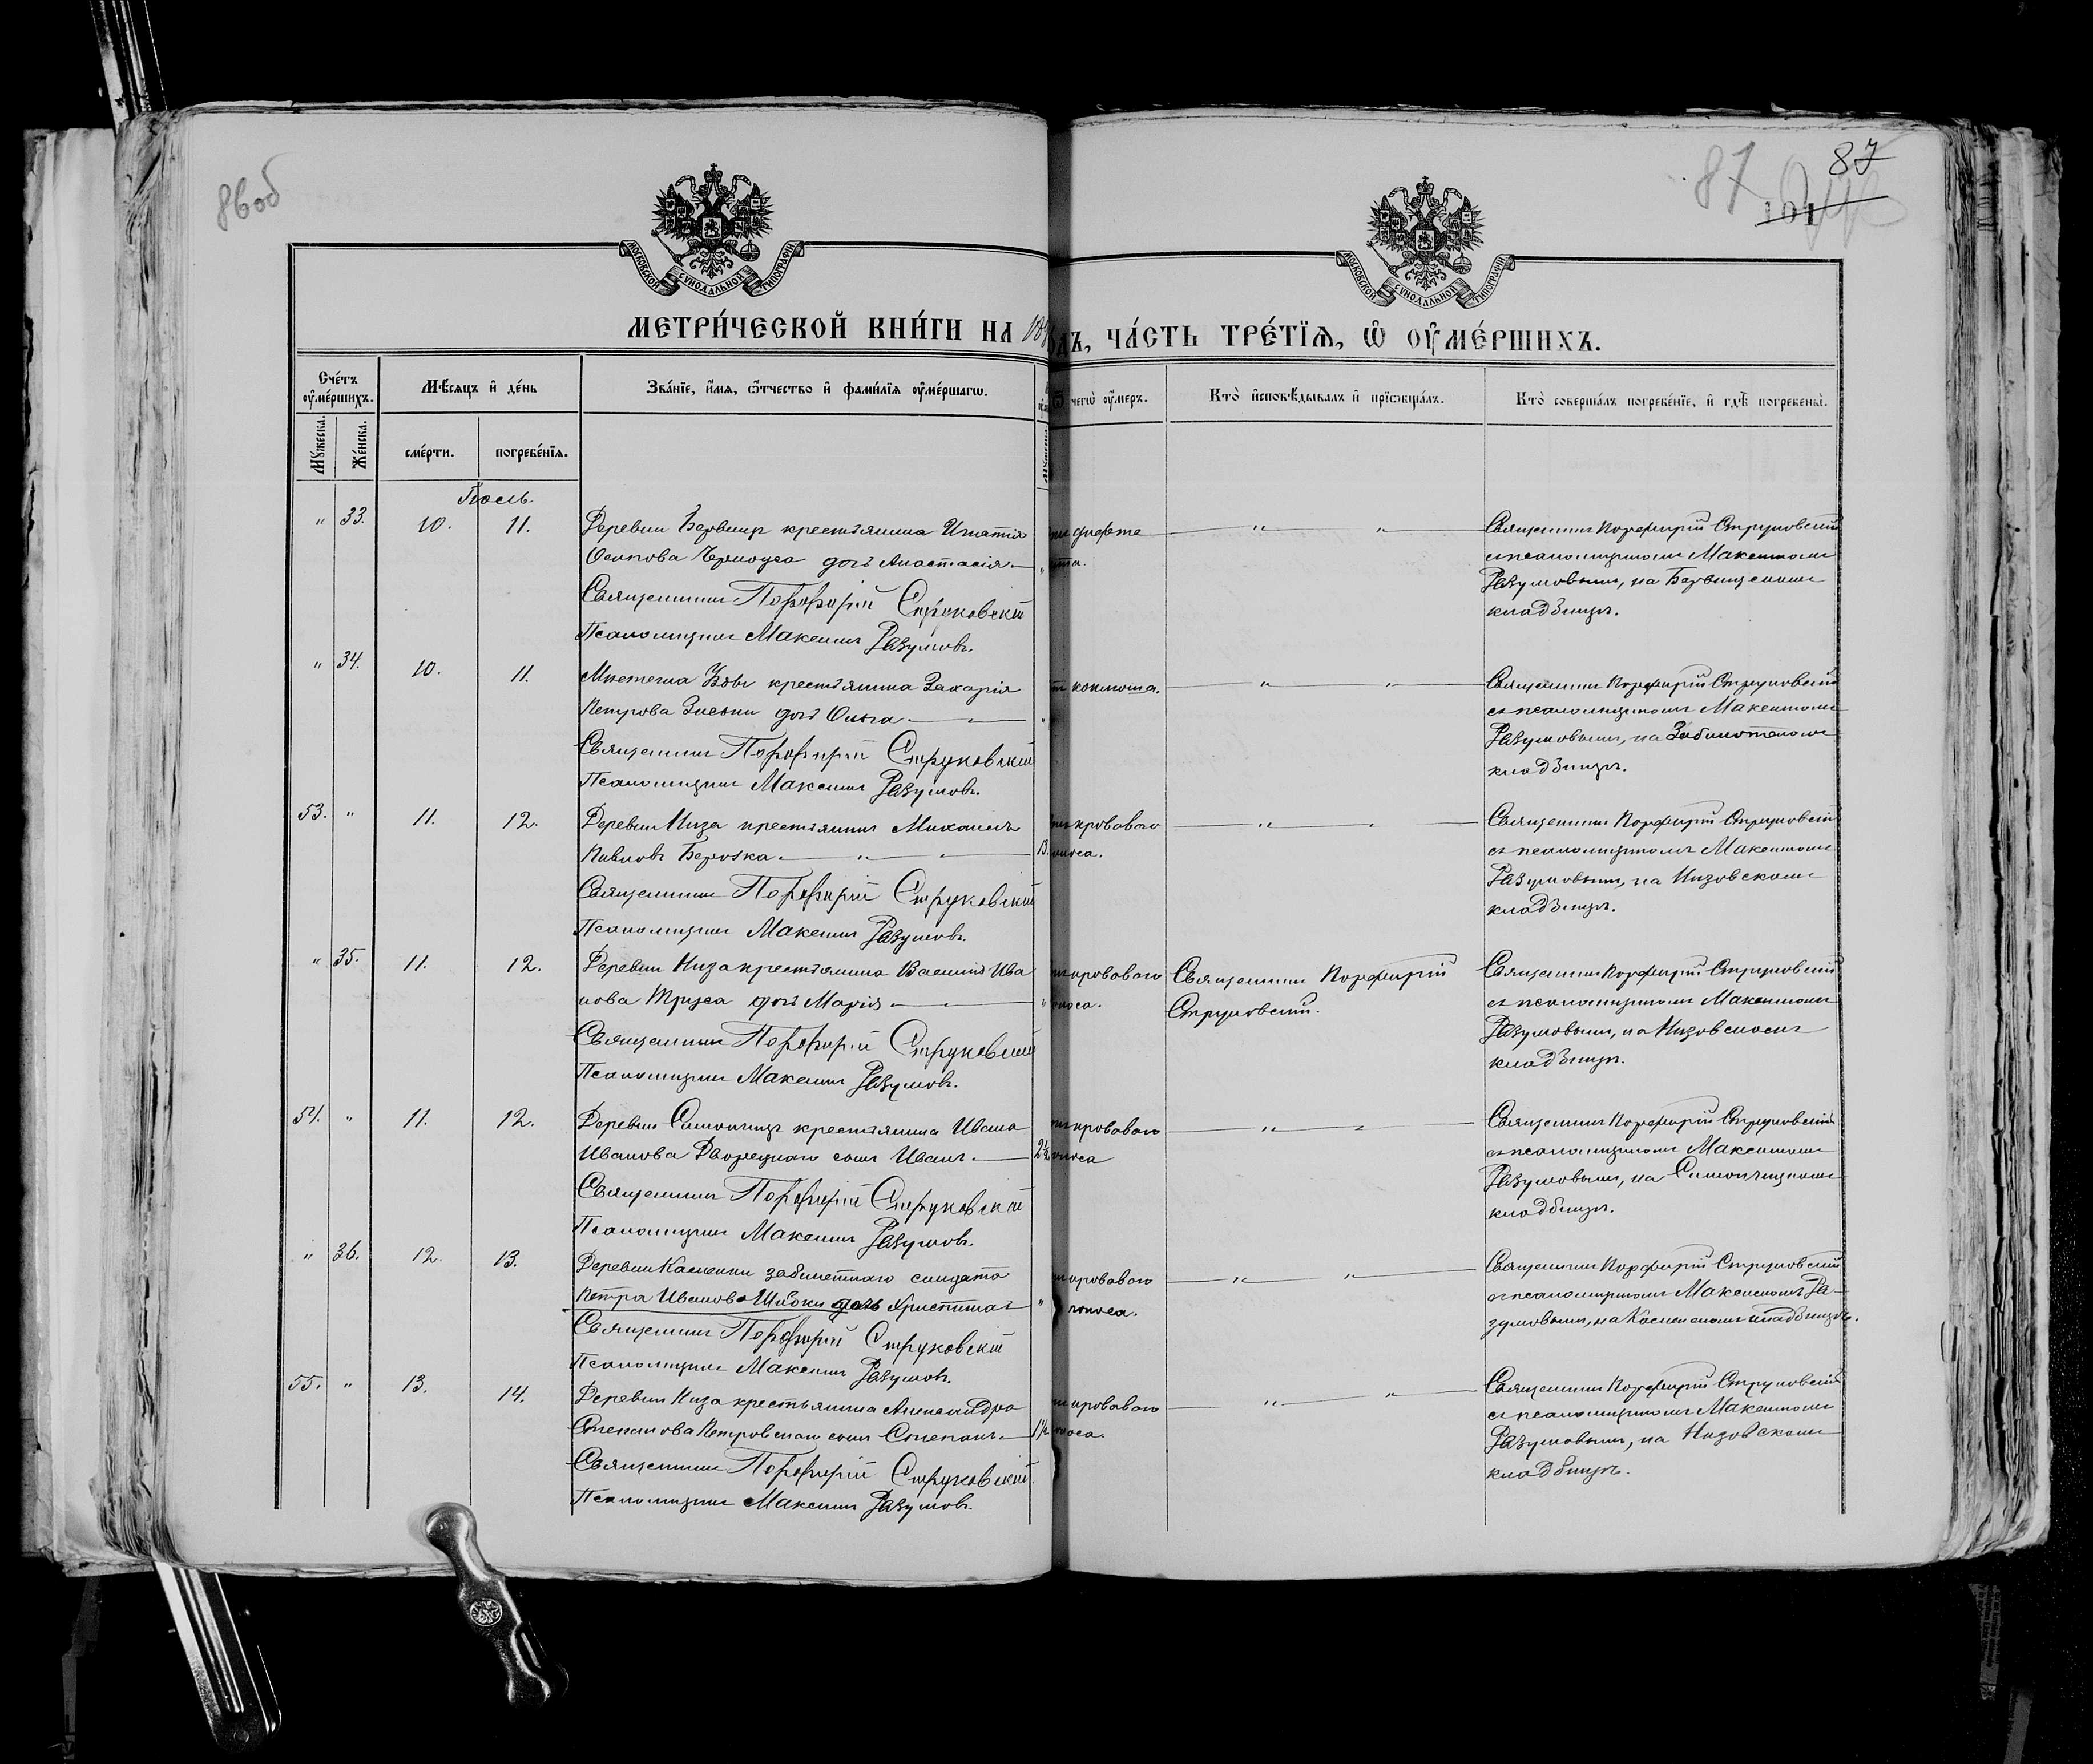 86об
87
87
101
МОСКОВСКОЙ СѴНОДАЛЬНОЙ ТИПОГРАФІИ
МОСКОВСКОЙ СѴНОДАЛЬНОЙ ТИПОГРАФІИ
МЕТРИ́ЧЕСКОЙ КНИ́ГИ НА 189
ДЪ, ЧА́СТЬ ТРЕ́ТЇѦ, Ѽ ОУ҆МЕ́РШИХЪ.
Сче́тъ оу҆ме́ршихъ.
Мѣ́сяцъ и҆ де́нь
Зва́нїе, и҆́мя, ѻ҆́тчество и҆ фами́лїя оу҆ме́ршагѡ.
Ѿ чегѡ̀ оу҆́меръ.
Кто̀ и҆сповѣ́дывалъ и҆ прїѡбща́лъ.
Кто̀ соверша́лъ погребе́нїе, и҆ гдѣ̀ погребены̀.
Мꙋ́жеска.
Же́нска.
сме́рти.
погребе́нїя.
Іюль
" 33. 10. 11. Деревни крестьянина Игнатія
Осипова Черноуса дочь Анастасія
Священникъ Порфирій Струковскій
Псаломщикъ Максимъ Разумовъ.
— " " —
Священникъ Порфирій Струковскій
съ псаломщикомъ Максимомъ
Разумовымъ, на
кладбищѣ.
" 34. 10. 11. Мѣстечка крестьянина Захарія
Петрова дочь Ольга
Священникъ Порфирій Струковскій
Псаломщикъ Максимъ Разумовъ.
коклюша. — " " —
Священникъ Порфирій Струковскій
съ псаломщикомъ Максимомъ
Разумовымъ, на
кладбищѣ.
53. " 11. 12. Деревни Низа крестьянинъ Михаилъ
Павловъ Березка — " —
13.
Священникъ Порфирій Струковскій
Псаломщикъ Максимъ Разумовъ.
кроваваго
поноса.
Священникъ Порфирій Струковскій
съ псаломщикомъ Максимомъ
Разумовымъ, на Низовскомъ
кладбищѣ.
" 35. 11. 12. Деревни Низа крестьянина Василія Ива
нова дочь Марія
Священникъ Порфирій Струковскій
Псаломщикъ Максимъ Разумовъ.
кроваваго
поноса.
Священникъ Порфирій
Струковскій.
Священникъ Порфирій Струковскій
съ псаломщикомъ Максимомъ
Разумовымъ, на Низовскомъ
кладбищѣ.
54. " 11. 12. Деревни Симоничъ крестьянина Ивана
Иванова Дворецкаго сынъ Иванъ.
Священникъ Порфирій Струковскій
Псаломщикъ Максимъ Разумовъ.
кроваваго
поноса
Священникъ Порфирій Струковскій
съ псаломщикомъ Максимомъ
Разумовымъ, на
кладбищѣ.
" 36. 12. 13. Деревни забилетнаго солдата
Петра Иванова дочь Христина
Священникъ Порфирій Струковскій
Псаломщикъ Максимъ Разумовъ.
кроваваго
поноса.
Священникъ Порфирій Струковскій
съ псаломщикомъ Максимомъ Ра-
зумовымъ, на кладбищѣ.
55. " 13. 14. Деревни Низа крестьянина Александра
Степанова Петровскаго сынъ Степанъ.
Священникъ Порфирій Струковскій.
Псаломщикъ Максимъ Разумовъ.
кроваваго
поноса.
Священникъ Порфирій Струковскій
съ псаломщикомъ Максимомъ
Разумовымъ, на Низовскомъ
кладбищѣ.